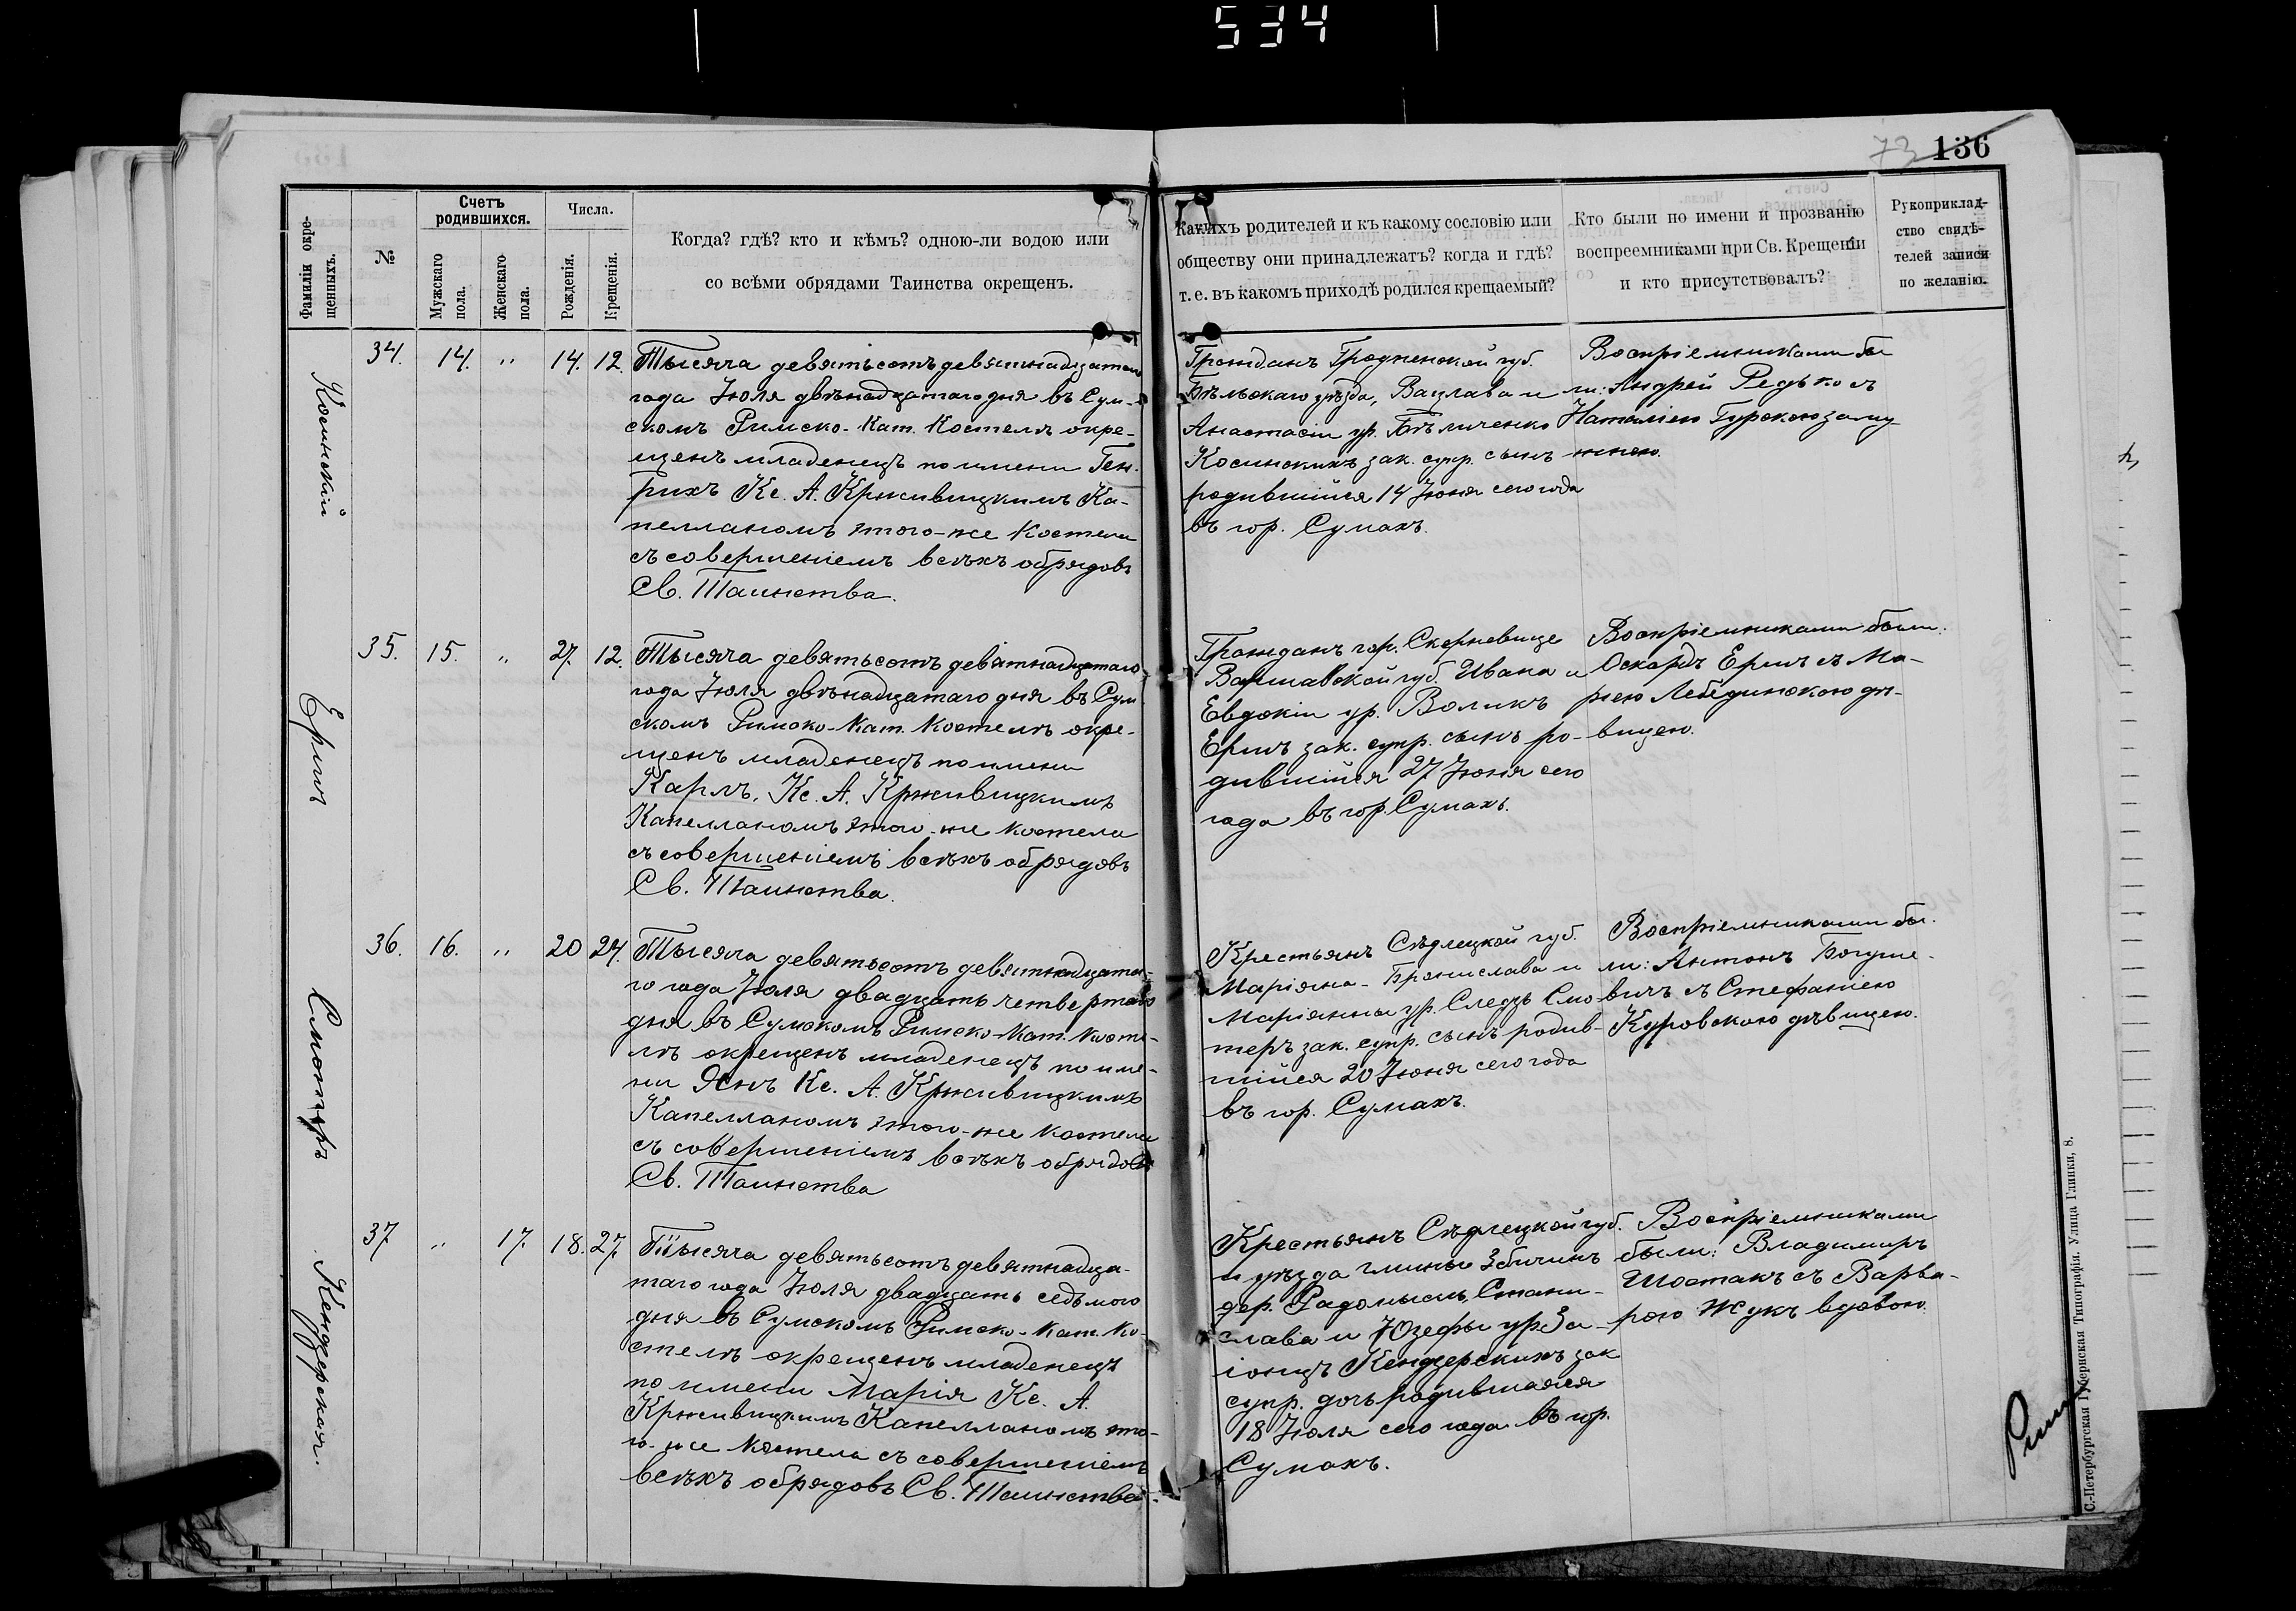 534
73 136
Фамиліи окре-
щенныхъ.
№
Счетъ
родившихся.
Мужскаго
пола.
Женскаго
пола.
Числа.
Рожденія.
Крещенія.
Когда? гдѣ? кто и кѣмъ? одною-ли водою или
со всѣми обрядами Таинства окрещенъ.
Какихъ родителей и къ какому сословію или
обществу они принадлежатъ? когда и гдѣ?
т. е. въ какомъ приходѣ родился крещаемый?
Кто были по имени и прозванію
воспреемниками при Св. Крещеніи
и кто присутствовалъ?
Рукоприклад-
ство свидѣ-
телей записи
по желанію.
Косинскій
34. 14. " 14. 12.
Тысяча девятьсотъ девятнадцатаго
года Іюля двѣнадцатаго дня въ Сум-
скомъ Римско-Кат. Костелѣ окре-
щенъ младенецъ по имени Ген-
рихъ Кс. А. Крживицкимъ Ка-
пелланомъ этого-же костела
съ совершеніемъ всѣхъ обрядовъ
Св. Таинства.
Гражданъ Гродненской губ.
Бѣльскаго уѣзда, Вацлава и
Анастасіи ур. Бѣличенко
Косинскихъ зак. супр. сынъ
родившійся 14 Іюня сего года
въ гор. Сумахъ.
Воспріемниками бы
ли: Андрей Редько съ
Наталіею Гурскою заму-
жнею.
Ерич
35. 15. " 27. 12.
Тысяча девятьсотъ девятнадцатаго
года Іюля двѣнадцатаго дня въ Сум
скомъ Римско-Кат. Костелѣ окре-
щенъ младенецъ по имени
Карлъ, Кс. А. Крживицкимъ
Капелланомъ этого-же костела
съ совершеніемъ всѣхъ обрядовъ
Св. Таинства.
Гражданъ гор. Скерневице
Варшавской губ. Ивана и
Евдокіи ур. Воликъ
Еричъ зак. супр. сынъ ро-
дившійся 27 Іюня сего
года въ гор. Сумахъ.
Воспріемниками были:
Оскаръ Еричъ съ Ма-
ріею Лебединскою дѣ-
вицею.
Смотеръ
36. 16. " 20 24.
Тысяча девятьсотъ девятнадцата-
го года Іюля двадцать четвертаго
дня въ Сумскомъ Римско-Кат. Косте-
лѣ окрещенъ младенецъ по име-
ни Янъ Кс. А. Крживицкимъ
Капелланомъ этого-же костела
съ совершеніемъ всѣхъ обрядовъ
Св. Таинства
Крестьянъ Сѣдлецкой губ.
Маріяна-Бронислава и
Маріянны ур. Следзь Смо
теръ зак. супр. сынъ родив-
шійся 20 Іюня сего года
въ гор. Сумахъ.
Воспріемниками бы-
ли: Антонъ Богуше-
вичъ съ Стефаніею
Куровскою дѣвицею.
Кендзерская.
37. " 17. 18. 27.
Тысяча девятьсотъ девятнадца-
таго года Іюля двадцать седьмого
дня въ Сумскомъ Римско-Кат. Ко-
стелѣ окрещенъ младенецъ
по имени Марія Кс. А.
Крживицкимъ Капелланомъ это-
го-же костела съ совершеніемъ
всѣхъ обрядовъ Св. Таинства.
Крестьянъ Сѣдлецкой губ.
и уѣзда гмины Збучинъ
дер. Радомысль, Стани-
слава и Юзефы ур. За-
іонцъ Кендзерскихъ зак.
супр. дочь родившаяся
18 Іюля сего года въ гор.
Сумахъ.
Воспріемниками
были: Владимиръ
Шостакъ съ Варва-
рою Жукъ вдовою.
С.-Петербургская Губернская Типографія. Улица Глинки, 8.